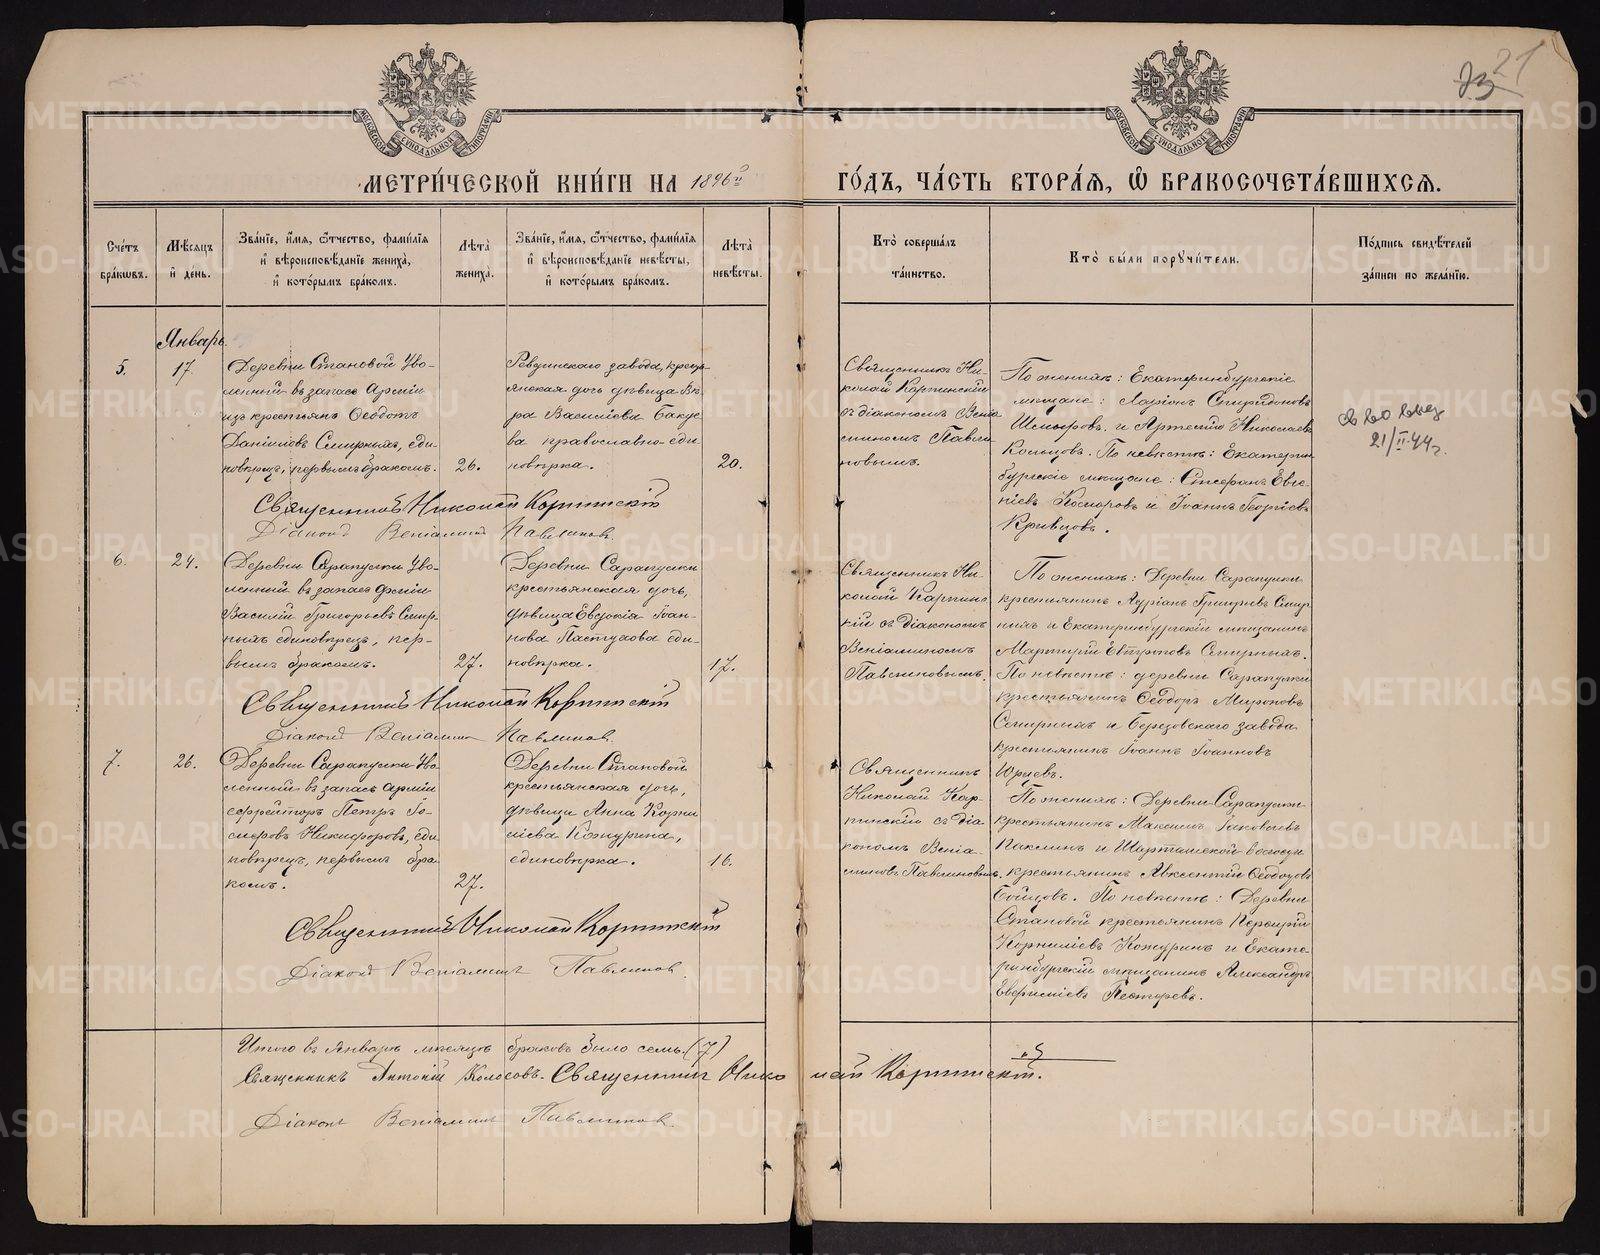 21
МЕТРИ́ЧЕСКОЙ КНИ́ГИ НА 1896й ГО́ДЪ, ЧА́СТЬ ВТОРА́Я, Ѡ БРАКОСОЧЕТА́ВШИХСЯ.
Сче́тъ бра́кѡвъ.
Мѣ́сяцъ и҆ де́нь.
Зва́нїе, и҆́мя, ѻ҆́тчество, фами́лїя
и҆ вѣроисповѣ́данїе жениха̀,
и҆ кото́рымъ бра́комъ.
Лѣ́та̀ жениха̀.
Зва́нїе, и҆́мя, ѻ҆́тчество, фами́лїя
и҆ вѣроисповѣ́данїе невѣ́сты,
и҆ кото́рымъ бра́комъ.
Лѣ́та̀ невѣ́сты.
Кто̀ соверша́лъ
та́инство.
Кто̀ бы́ли поручи́тели.
По́дпись свидѣ́телей
за́писи по жела́нїю.
Январь.
5.
17.
Деревни Становой Уво-
ленный въ запасъ Арміи
изъ крестьянъ Ѳеодотъ
Даніиловъ Смирныхъ, еди-
новѣрецъ, первымъ бракомъ.
26.
Ревдинскаго завода, кресть-
янская дочь дѣвица Вѣ-
ра Василіева
ва православно-еди-
новѣрка.
20.
Священникъ Ни-
колай Карпинскій
съ діакономъ Веніа-
миномъ Павли-
новымъ.
По женихѣ: Екатеринбургскіе
мѣщане: Ларіонъ Спиридоновъ
и Артемій Николаевъ
Кольцовъ. По невѣстѣ: Екатерин-
бургскіе мѣщане: Стефанъ Евге-
ніевъ Комаровъ и Іоаннъ Георгіевъ
Кривцовъ.
21/II-44г.
Священникъ Николай Карпинскій
Діаконъ Веніаминъ Павлиновъ.
6.
24.
Деревни Сарапулки Уво-
ленный въ запасъ арміи
Василій Григорьевъ Смир-
ныхъ единовѣрецъ, пер-
вымъ бракомъ.
27.
Деревни Сарапулки
крестьянская дочь,
дѣвица Евдокія Іоан-
нова Пастухова еди-
новѣрка.
17.
Священникъ Ни-
колай Карпинс-
кій съ діакономъ
Веніаминомъ
Павлиновымъ.
По женихѣ: Деревни Сарапулки
крестьянинъ Адріанъ Григорьевъ Смир-
ныхъ и Екатеринбургскій мѣщанинъ
Мартирій Смирныхъ.
По невѣстѣ: деревни Сарапулки
крестьянинъ Ѳеодоръ Мироновъ
Смирныхъ и Березовскаго завода
крестьянинъ Іоаннъ Іоанновъ
Юрьевъ.
Священникъ Николай Карпинскій
Діаконъ Веніаминъ Павлиновъ.
7.
26.
Деревни Сарапулки Уво-
ленный въ запасъ арміи
ефрейторъ Петръ Го-
меровъ Никифоровъ, еди-
новѣрецъ, первымъ бра-
комъ.
27.
Деревни Становой
крестьянская дочь,
дѣвица Анна Корни-
ліева Кожурина,
единовѣрка.
16.
Священникъ
Николай Кар-
пинскій съ діа-
кономъ Веніа-
миномъ Павлиновымъ.
По женихѣ: Деревни Сарапулки
крестьянинъ Максимъ Іаковлевъ
Паклинъ и Шарташской волости
крестьянинъ Авксентій Ѳеодотовъ
Бойцовъ. По невѣстѣ: Деревни
Становой крестьянинъ Порфирій
Корниліевъ Кожуринъ и Екате-
ринбургскій мѣщанинъ Александръ
Пестеревъ.
Священникъ Николай Карпинскій
Діаконъ Веніаминъ Павлиновъ.
Итого въ Январѣ мѣсяцѣ браковъ было семь. (7)
Священникъ Антоній Колосовъ. Священникъ Николай Карпинскій.
Діаконъ Веніаминъ Павлиновъ.
METRIKI.GASO-URAL.RU